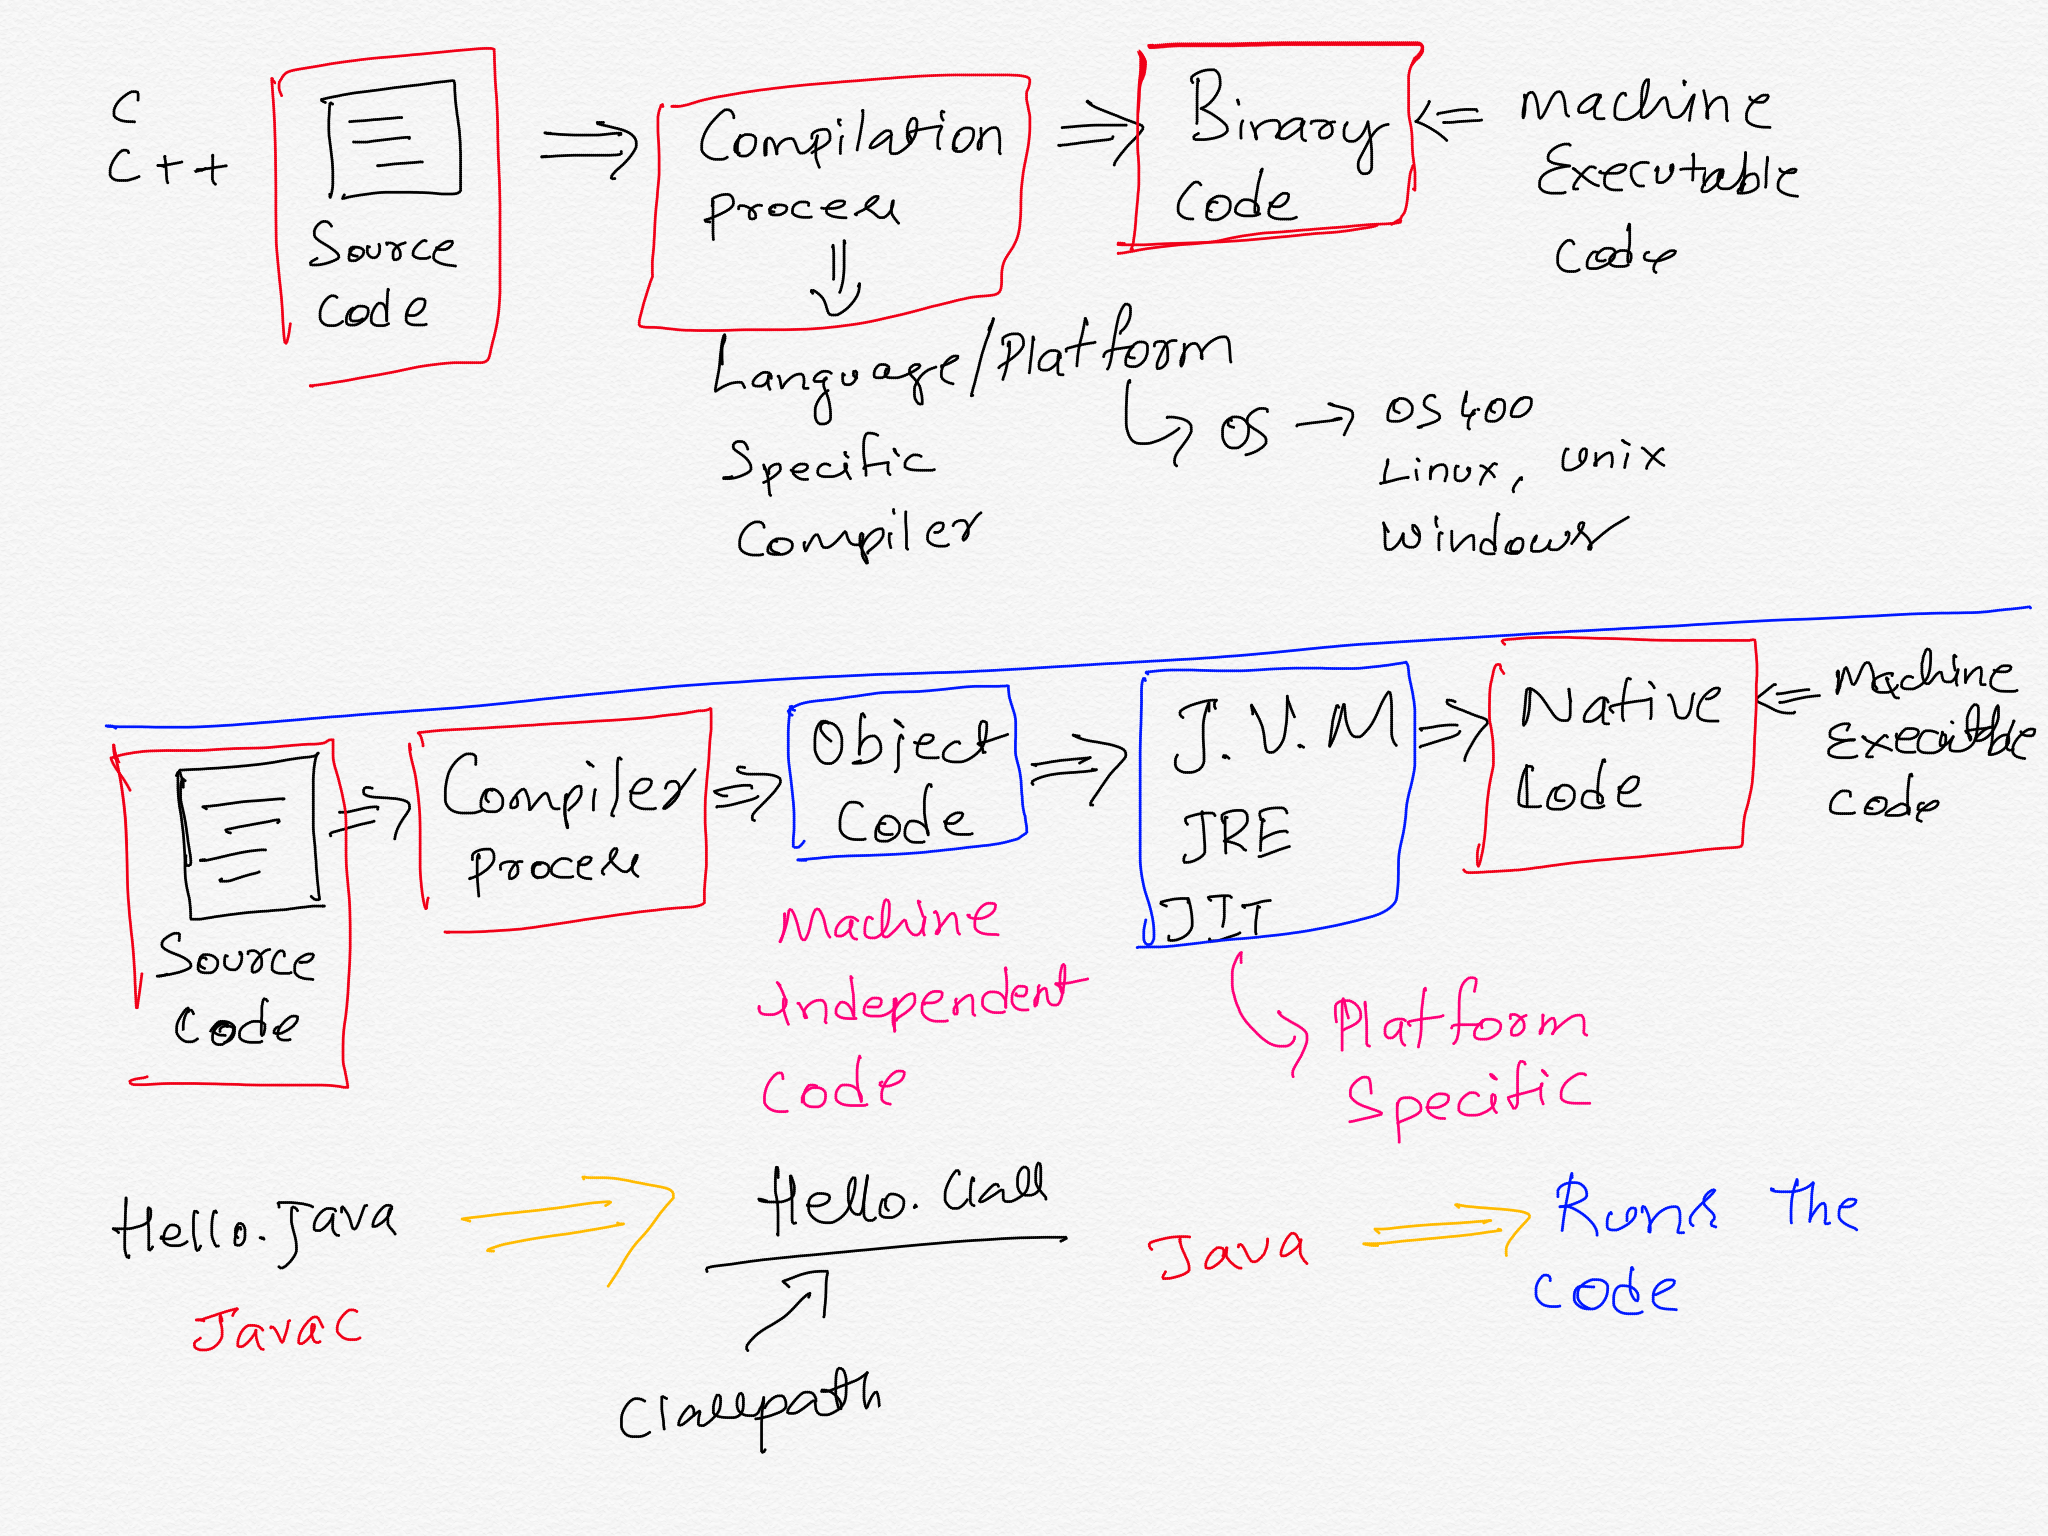 C
C++
Source
Code
Compilation
Process
Binary
Code
Machine
Executable
Code
Language/Platform
Specific
Compiler
OS
OS400
Linux, Unix
Windows
Source
Code
Compiler
Process
Object
Code
Machine
Independent
Code
J.V.M
JRE
JIT
Platform
Specific
Native
Code
Machine
Executable
Code
Hello.Java
Javac
Hello.Class
Classpath
Java
Runs The
Code